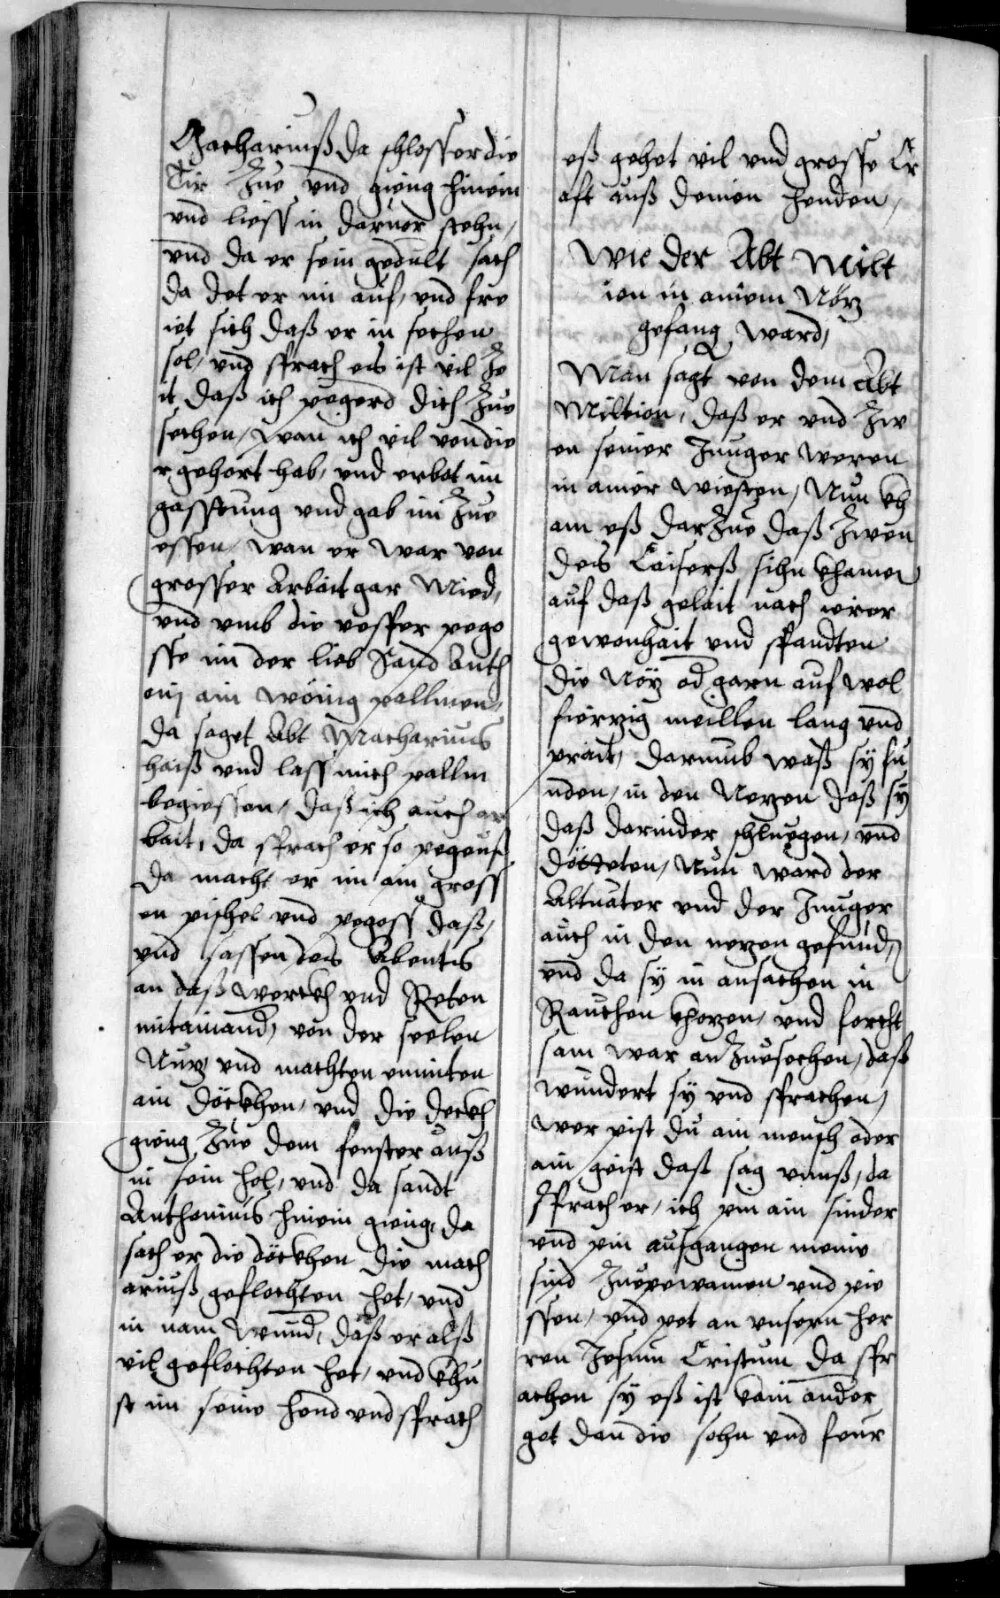 Macharius da schlosser die
Tir Zue und gieng hinein
und liess in darvor stehn,
und da er sein gedult sach
da det er im auf, und fre
iet sich daß er in sechen
sol, und sprach es ist vil Ze
it daß ich pegerd dich Zue
sechen, wan ich vil von die
r gehort hab, und erbot im
gasstung und gab im Zue
essen, wan er war von
grosser Arbait gar Mied,
und umb die vesper pego
sse im der lieb Sand Anth
onj ain wönig pallmen,
da saget Abt Macharius
haiß und lass mich pallm
begiessen, daß ich auch ar
bait, da sprach er so pegeuß
da macht er im ain gross
en pischel und pegoss daß,
und sassen des Abentes
an daß werckh und Reten
mitainand, von der seelen
Nuz und machten enmiten
ain döckhen, und die deckh
gieng Zue dem fenster auß
in sein hol, und da sandt
Anthonius hinein gieng, da
sach er die döckhen die mach
ariuß geflochten het, und
in nam Wund, daß er alß
vil geflochten het, und khu
st im seine hend und sprach
eß gehet vil und grosse Cr
aft auß deinen henden,
Wie der Abt Milt
ion in ainem Nöz
gefang ward,
Man sagt von dem Abt
Miltion, daß er und Zw
en seiner Junger weren
in ainer wiesten, Nun kh
am eß darZue daß Zwen
des Caiserß sihn khamen
auf daß gelait nach irer
gewonhait und spandten
die Nöz od garn auf wol
fierzig meillen lang und
prait, darumb waß sy fu
nden, in den Nezen deß sy
daß darinder schluegen, und
döteten, Nun ward der
Altuater und der Junger
auch in den nezen gefund,
und da sy in ansachen in
Rauchen khozen, und forcht
sam war anZuesechen, daß
wundert sy und sprachen,
wer pist du ain mensch oder
ain geist daß sag unnß, da
sprach er, ich pin ain sinder
und pin außgangen meine
sind Zuepewainen und pie
ssen, und pet an unsern her
ren Jesum Cristum da spr
achen sy eß ist kain ander
got dan die sohn und feur